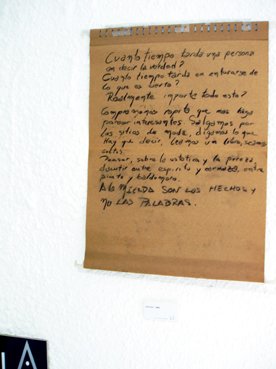 Cuanto tiempo tarda una persona
en decir la verdad?
Cuanto tiempo tarda en enterarse de
lo que es cierto?
Realmente importa todo esto?
Compremonos ropita que nos haga
parecer interesantes. Salgamos por
los sitios de moda, digamos lo que
hay que decir, leamos un libro, seamos
cultos.
Pensar, sobre la estetica y la pureza
discutir entre espiritu y carnaza, entre
punto y
A LA MIERDA SON LOS HECHOS Y
NO LAS PALABRAS.
LA